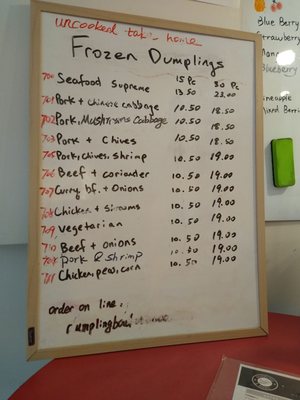 uncooked take home
Frozen Dumplings
15 Pc 30 Pc
700 Seafood Supreme 13.50 23.00
701 Pork + Chinese cabbage 10.50 18.50
702 Pork, Mushrooms Cabbage 10.50 18.50
703 Pork + Chives 10.50 18.50
705 Pork, chives, shrimp 10.50 19.00
706 Beef + coriander 10.50 19.00
707 Curry bf. + Onions 10.50 19.00
708 Chicken + 10.50 19.00
709 vegetarian 10.50 19.00
710 Beef + onions 10.50 19.00
704 pork & shrimp 10.50 19.00
711 Chicken, peas, corn 10.50 19.00
order on line.
Blue Berry
Strawberry
Mang
Blueberry
ineapple